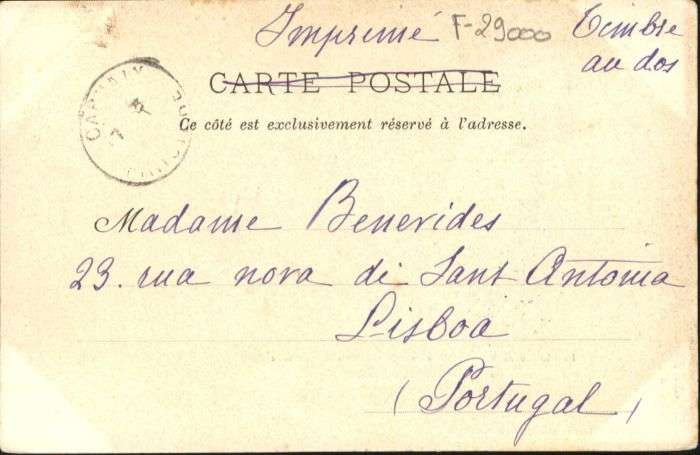 Imprimé F-29000 Timbre
au dos
CARTE POSTALE
Ce côté est exclusivement réservé à l'adresse.
Madame Benevides
23. rua nova di Sant Antonia
Lisboa
(Portugal)